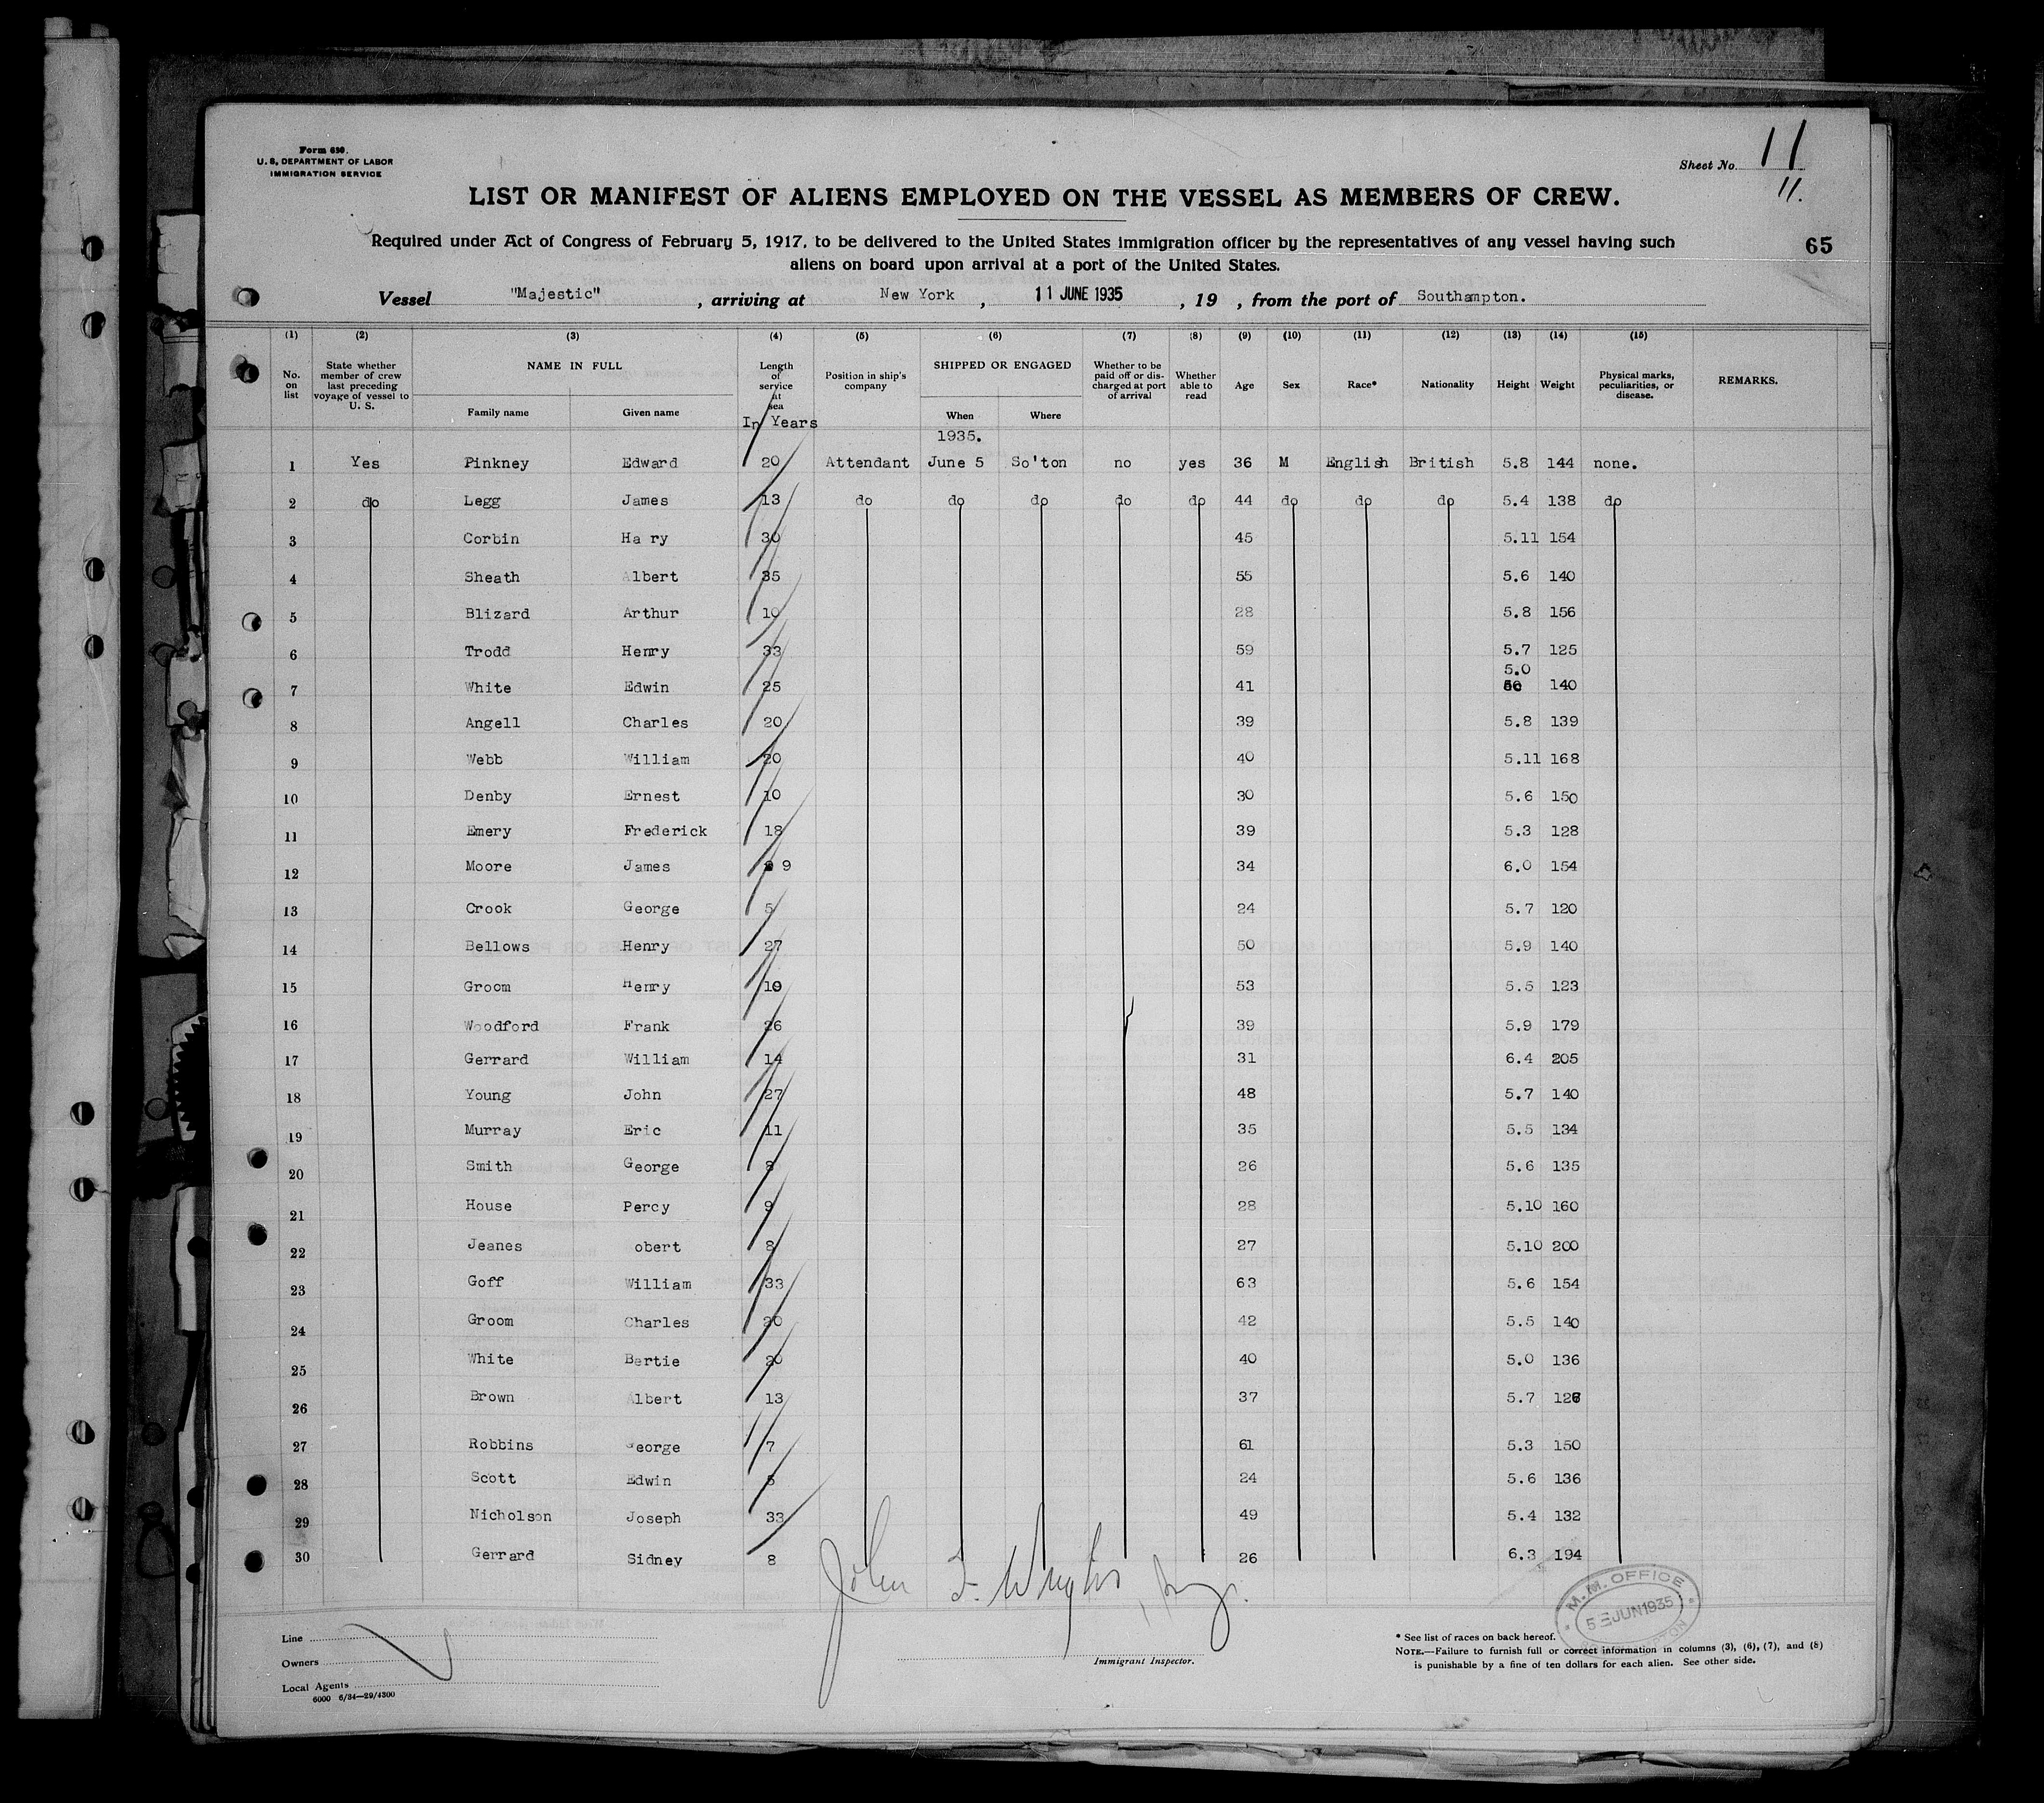 Form 680.
U. S. DEPARTMENT OF LABOR
IMMIGRATION SERVICE
Sheet No. 11
11.
LIST OR MANIFEST OF ALIENS EMPLOYED ON THE VESSEL AS MEMBERS OF CREW.
Required under Act of Congress of February 5, 1917, to be delivered to the United States immigration officer by the representatives of any vessel having such
aliens on board upon arrival at a port of the United States.
65
Vessel "Majestic", arriving at New York, 11 JUNE 1935, 19 , from the port of Southampton.
(1) (2) (3) (4) (5) (6) (7) (8) (9) (10) (11) (12) (13) (14) (15)
No. on list State whether member of crew last preceding voyage of vessel to U. S. NAME IN FULL Length of service at sea Position in ship's company SHIPPED OR ENGAGED Whether to be paid off or discharged at port of arrival Whether able to read Age Sex Race* Nationality Height Weight Physical marks, peculiarities, or disease. REMARKS.
Family name Given name In Years When Where
1935.
1 Yes Pinkney Edward 20 Attendant June 5 So'ton no yes 36 M English British 5.8 144 none.
2 do Legg James 13 do do do do do 44 do do do 5.4 138 do
3 Corbin Ha ry 30 45 5.11 154
4 Sheath Albert 35 55 5.6 140
5 Blizard Arthur 10 28 5.8 156
6 Trodd Henry 33 59 5.7 125
5.0
7 White Edwin 25 41 140
8 Angell Charles 20 39 5.8 139
9 Webb William 20 40 5.11 168
10 Denby Ernest 10 30 5.6 150
11 Emery Frederick 18 39 5.3 128
12 Moore James 9 34 6.0 154
13 Crook George 5 24 5.7 120
14 Bellows Henry 27 50 5.9 140
15 Groom Henry 10 53 5.5 123
16 Woodford Frank 26 39 5.9 179
17 Gerrard William 14 31 6.4 205
18 Young John 27 48 5.7 140
19 Murray Eric 11 35 5.5 134
20 Smith George 8 26 5.6 135
21 House Percy 9 28 5.10 160
22 Jeanes obert 8 27 5.10 200
23 Goff William 33 63 5.6 154
24 Groom Charles 20 42 5.5 140
25 White Bertie 20 40 5.0 136
26 Brown Albert 13 37 5.7
27 Robbins George 7 61 5.3 150
28 Scott Edwin 24 5.6 136
29 Nicholson Joseph 33 49 5.4 132
30 Gerrard Sidney 8 26 6.3 194
John
M.M. OFFICE
5 JUN 1935
Line
Owners
Local Agents
6000 6/34—29/4300
Immigrant Inspector.
* See list of races on back hereof.
NOTE.—Failure to furnish full or correct information in columns (3), (6), (7), and (8)
is punishable by a fine of ten dollars for each alien. See other side.